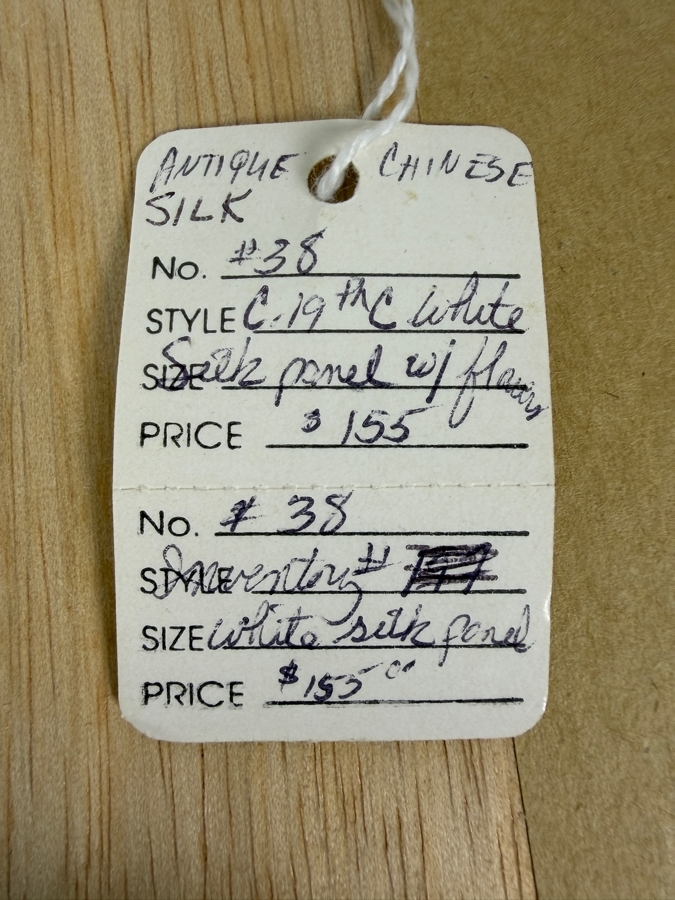 ANTIQUE CHINESE
SILK
No. #38
STYLE C.19th C White
SIZE Silk panel w/ flowers
PRICE $155
No. # 38
STYLE Inventory #
SIZE white silk panel
PRICE $155 00